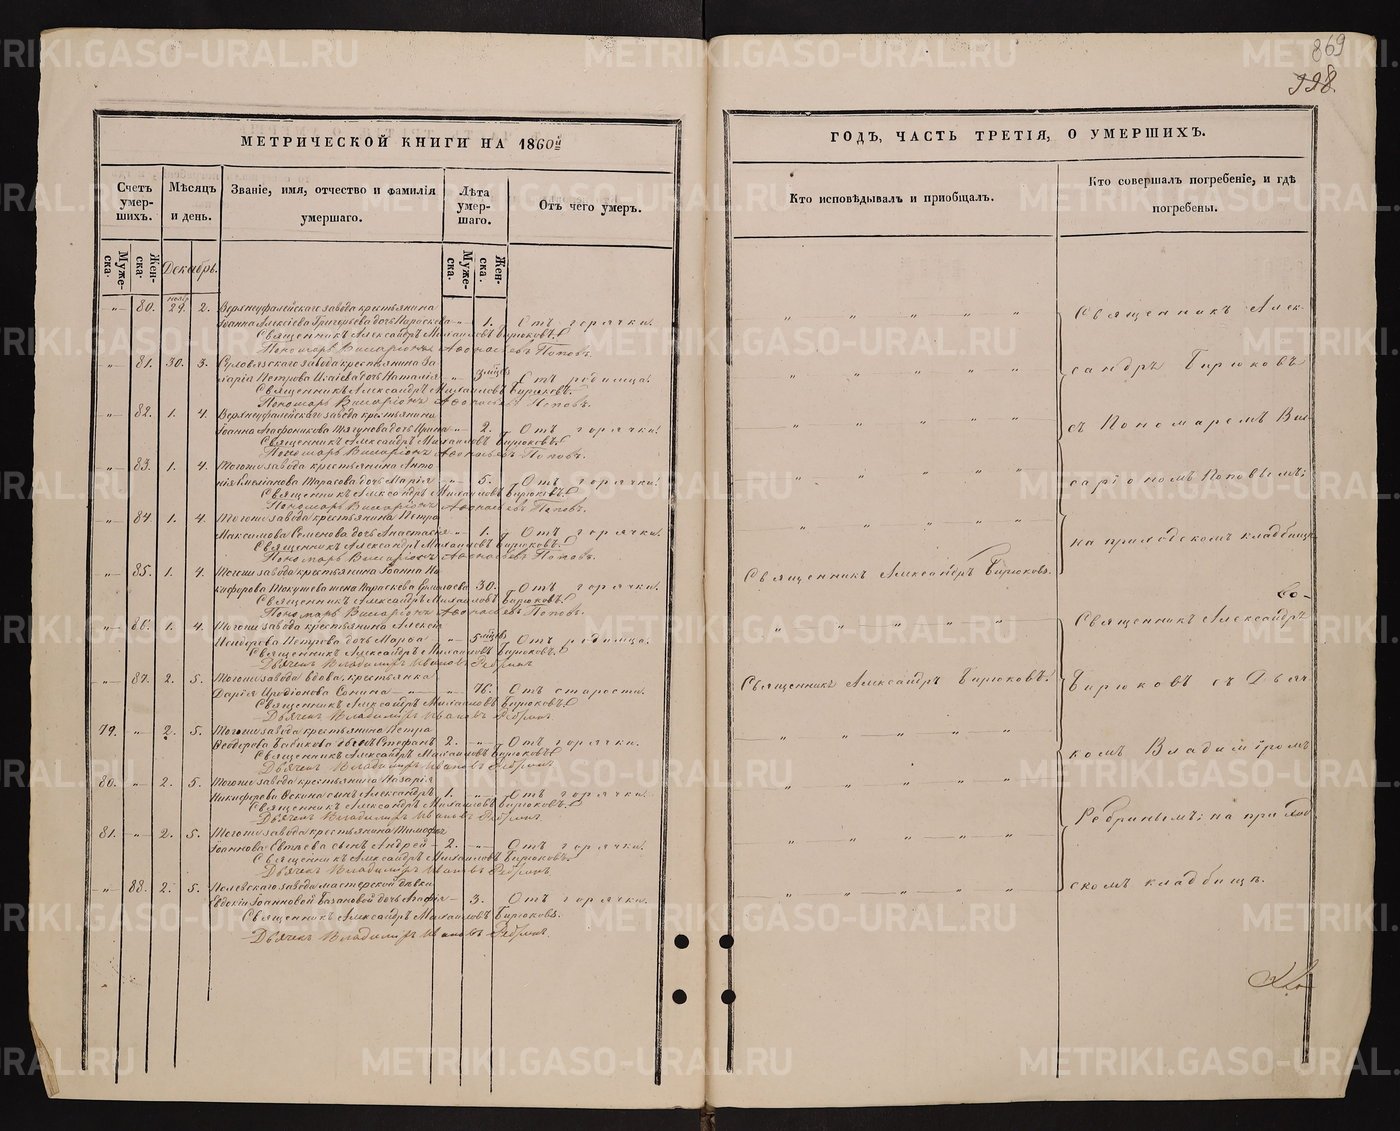 869
998.
МЕТРИЧЕСКОЙ КНИГИ НА 1860й
ГОДЪ, ЧАСТЬ ТРЕТІЯ, О УМЕРШИХЪ.
Счетъ умер-шихъ.
Мѣсяцъ и день.
Званіе, имя, отчество и фамилія умершаго.
Лѣта умер-шаго.
Отъ чего умеръ.
Кто исповѣдывалъ и приобщалъ.
Кто совершалъ погребеніе, и гдѣ погребены.
Муже-ска.
Жен-ска.
Декабрь.
Муже-ска.
Жен-ска.
„ 80. нояб. 29. 2. Верхнеуфалейскаго завода крестьянина
Іоанна Алексіева Григорьева дочь Параскева „ 1. Отъ горячки.
Священникъ Александръ Михаиловъ Бирюковъ.
Пономарь Виссаріонъ Аѳонасьевъ Поповъ.
„ 81. 30. 3. завода крестьянина За-
харія Петрова дочь Наталія „ 3 мѣсяц. Отъ родимца.
Священникъ Александръ Михаиловъ Бирюковъ.
Пономарь Виссаріонъ Аѳонасьевъ Поповъ.
„ 82. 1. 4. Верхнеуфалейскаго завода крестьянина
Іоанна Агафоникова дочь Ирина „ 2. Отъ горячки.
Священникъ Александръ Михаиловъ Бирюковъ.
Пономарь Виссаріонъ Аѳонасьевъ Поповъ.
„ 83. 1. 4. Тогоже завода крестьянина Анто-
нія Емеліанова Тарасова дочь Марія „ 5. Отъ горячки.
Священникъ Александръ Михаиловъ Бирюковъ.
Пономарь Виссаріонъ Аѳонасьевъ Поповъ.
„ 84. 1. 4. Тогоже завода крестьянина Петра
Максимова Семенова дочь Анастасія „ 1. Отъ горячки.
Священникъ Александръ Михаиловъ Бирюковъ.
Пономарь Виссаріонъ Аѳонасьевъ Поповъ.
„ 85. 1. 4. Тогоже завода крестьянина Іоанна Ни-
кифорова жена Параскева Ермилаева 30. Отъ горячки.
Священникъ Александръ Михаиловъ Бирюковъ.
Пономарь Виссаріонъ Аѳонасьевъ Поповъ.
„ 86. 1. 4. Тогоже завода крестьянина Алексія
Петрова дочь Марѳа „ 5 мѣсяц. Отъ родимца.
Священникъ Александръ Михаиловъ Бирюковъ.
Дьячекъ Владимиръ Ивановъ Ребринъ
„ 87. 2. 5. Тогоже завода вдова крестьянка
Дарія Иродіонова „ 76. Отъ старости.
Священникъ Александръ Михаиловъ Бирюковъ.
Дьячекъ Владимиръ Ивановъ Ребринъ
79. „ 2. 5. Тогоже завода крестьянина Петра
Ѳеодорова Бабикова сынъ Стефанъ 2. „ Отъ горячки.
Священникъ Александръ Михаиловъ Бирюковъ.
Дьячекъ Владимиръ Ивановъ Ребринъ
80. „ 2. 5. Тогоже завода крестьянина Назарія
Никифорова сынъ Александръ 1. „ Отъ горячки.
Священникъ Александръ Михаиловъ Бирюковъ.
Дьячекъ Владимиръ Ивановъ Ребринъ
81. „ 2. 5. Тогоже завода крестьянина Тимофея
Іоаннова сынъ Андрей 2. „ Отъ горячки.
Священникъ Александръ Михаиловъ Бирюковъ.
Дьячекъ Владимиръ Ивановъ Ребринъ
„ 88. 2. 5. Полевскаго завода мастерской дѣвки
Евдокіи Іоанновой Базановой дочь Агафія „ 3. Отъ горячки.
Священникъ Александръ Михаиловъ Бирюковъ.
Дьячекъ Владимиръ Ивановъ Ребринъ.
Священникъ Александръ Бирюковъ.
Священникъ Александръ Бирюковъ.
Священникъ Алек-
сандръ Бирюковъ
съ Пономаремъ Вис-
саріономъ Поповымъ;
на приходскомъ кладбищѣ
Священникъ Александръ
Бирюковъ съ Дьяч-
комъ Владиміромъ
Ребринымъ; на приход-
скомъ кладбищѣ.
METRIKI.GASO-URAL.RU